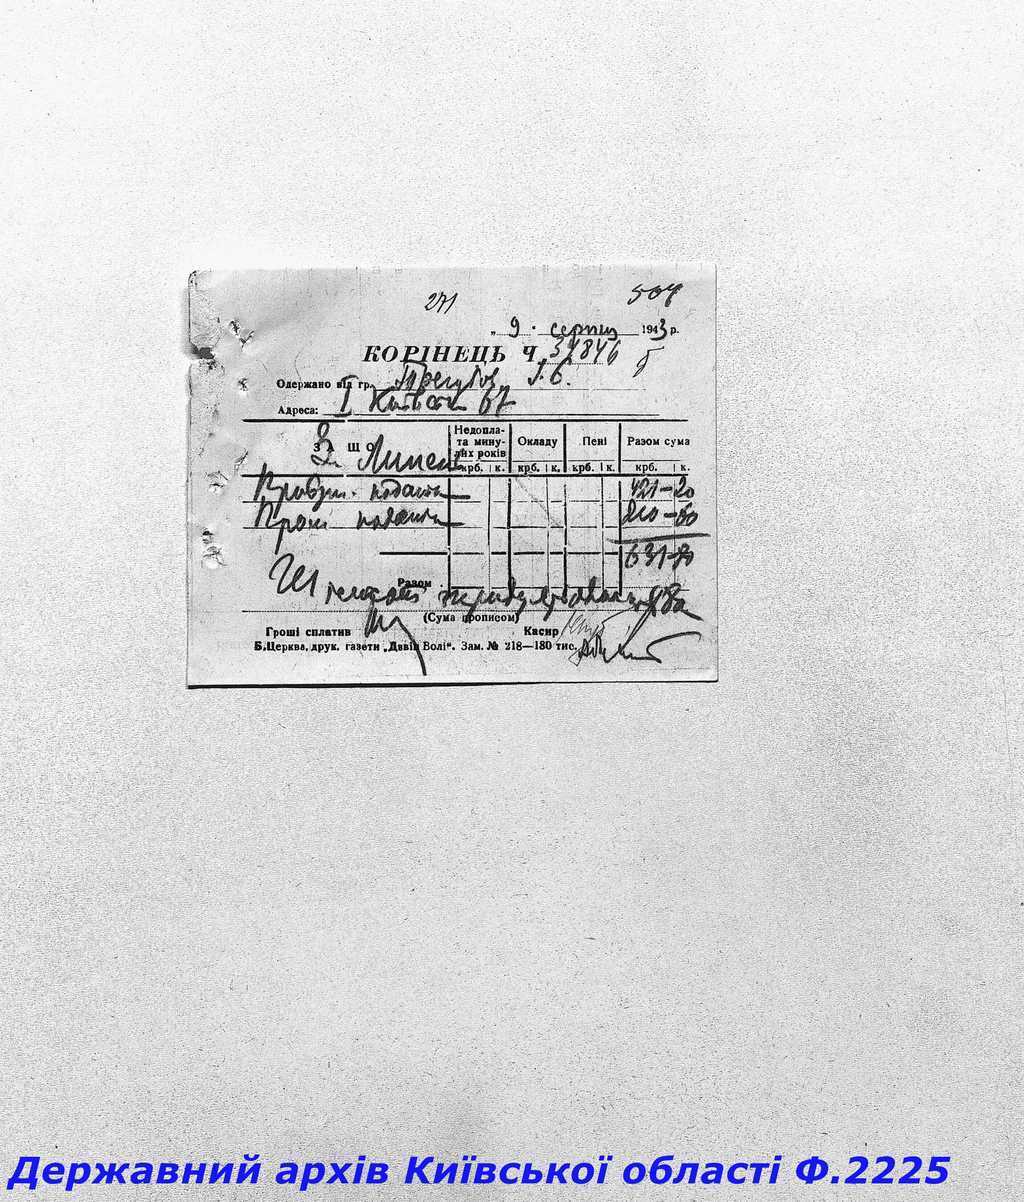 271 504
„ 9 . серпня 1943 р.
КОРІНЕЦЬ Ч. 37846
Одержано від гр. І. Є.
Адреса: І Київська 67
ЗА ЩО За Липень
Недопла-та мину-лих років Окладу Пені Разом сума
крб. к. крб. к. крб. к. крб. к.
податк 421-20
податк 210-60
631-80
Разом
Шістсот тридцять один крб 80
(Сума прописом)
Гроші сплатив Касир
Б.Церква, друк. газети „Дзвін Волі“. Зам. № 218—180 тис.
Державний архів Київської області Ф.2225